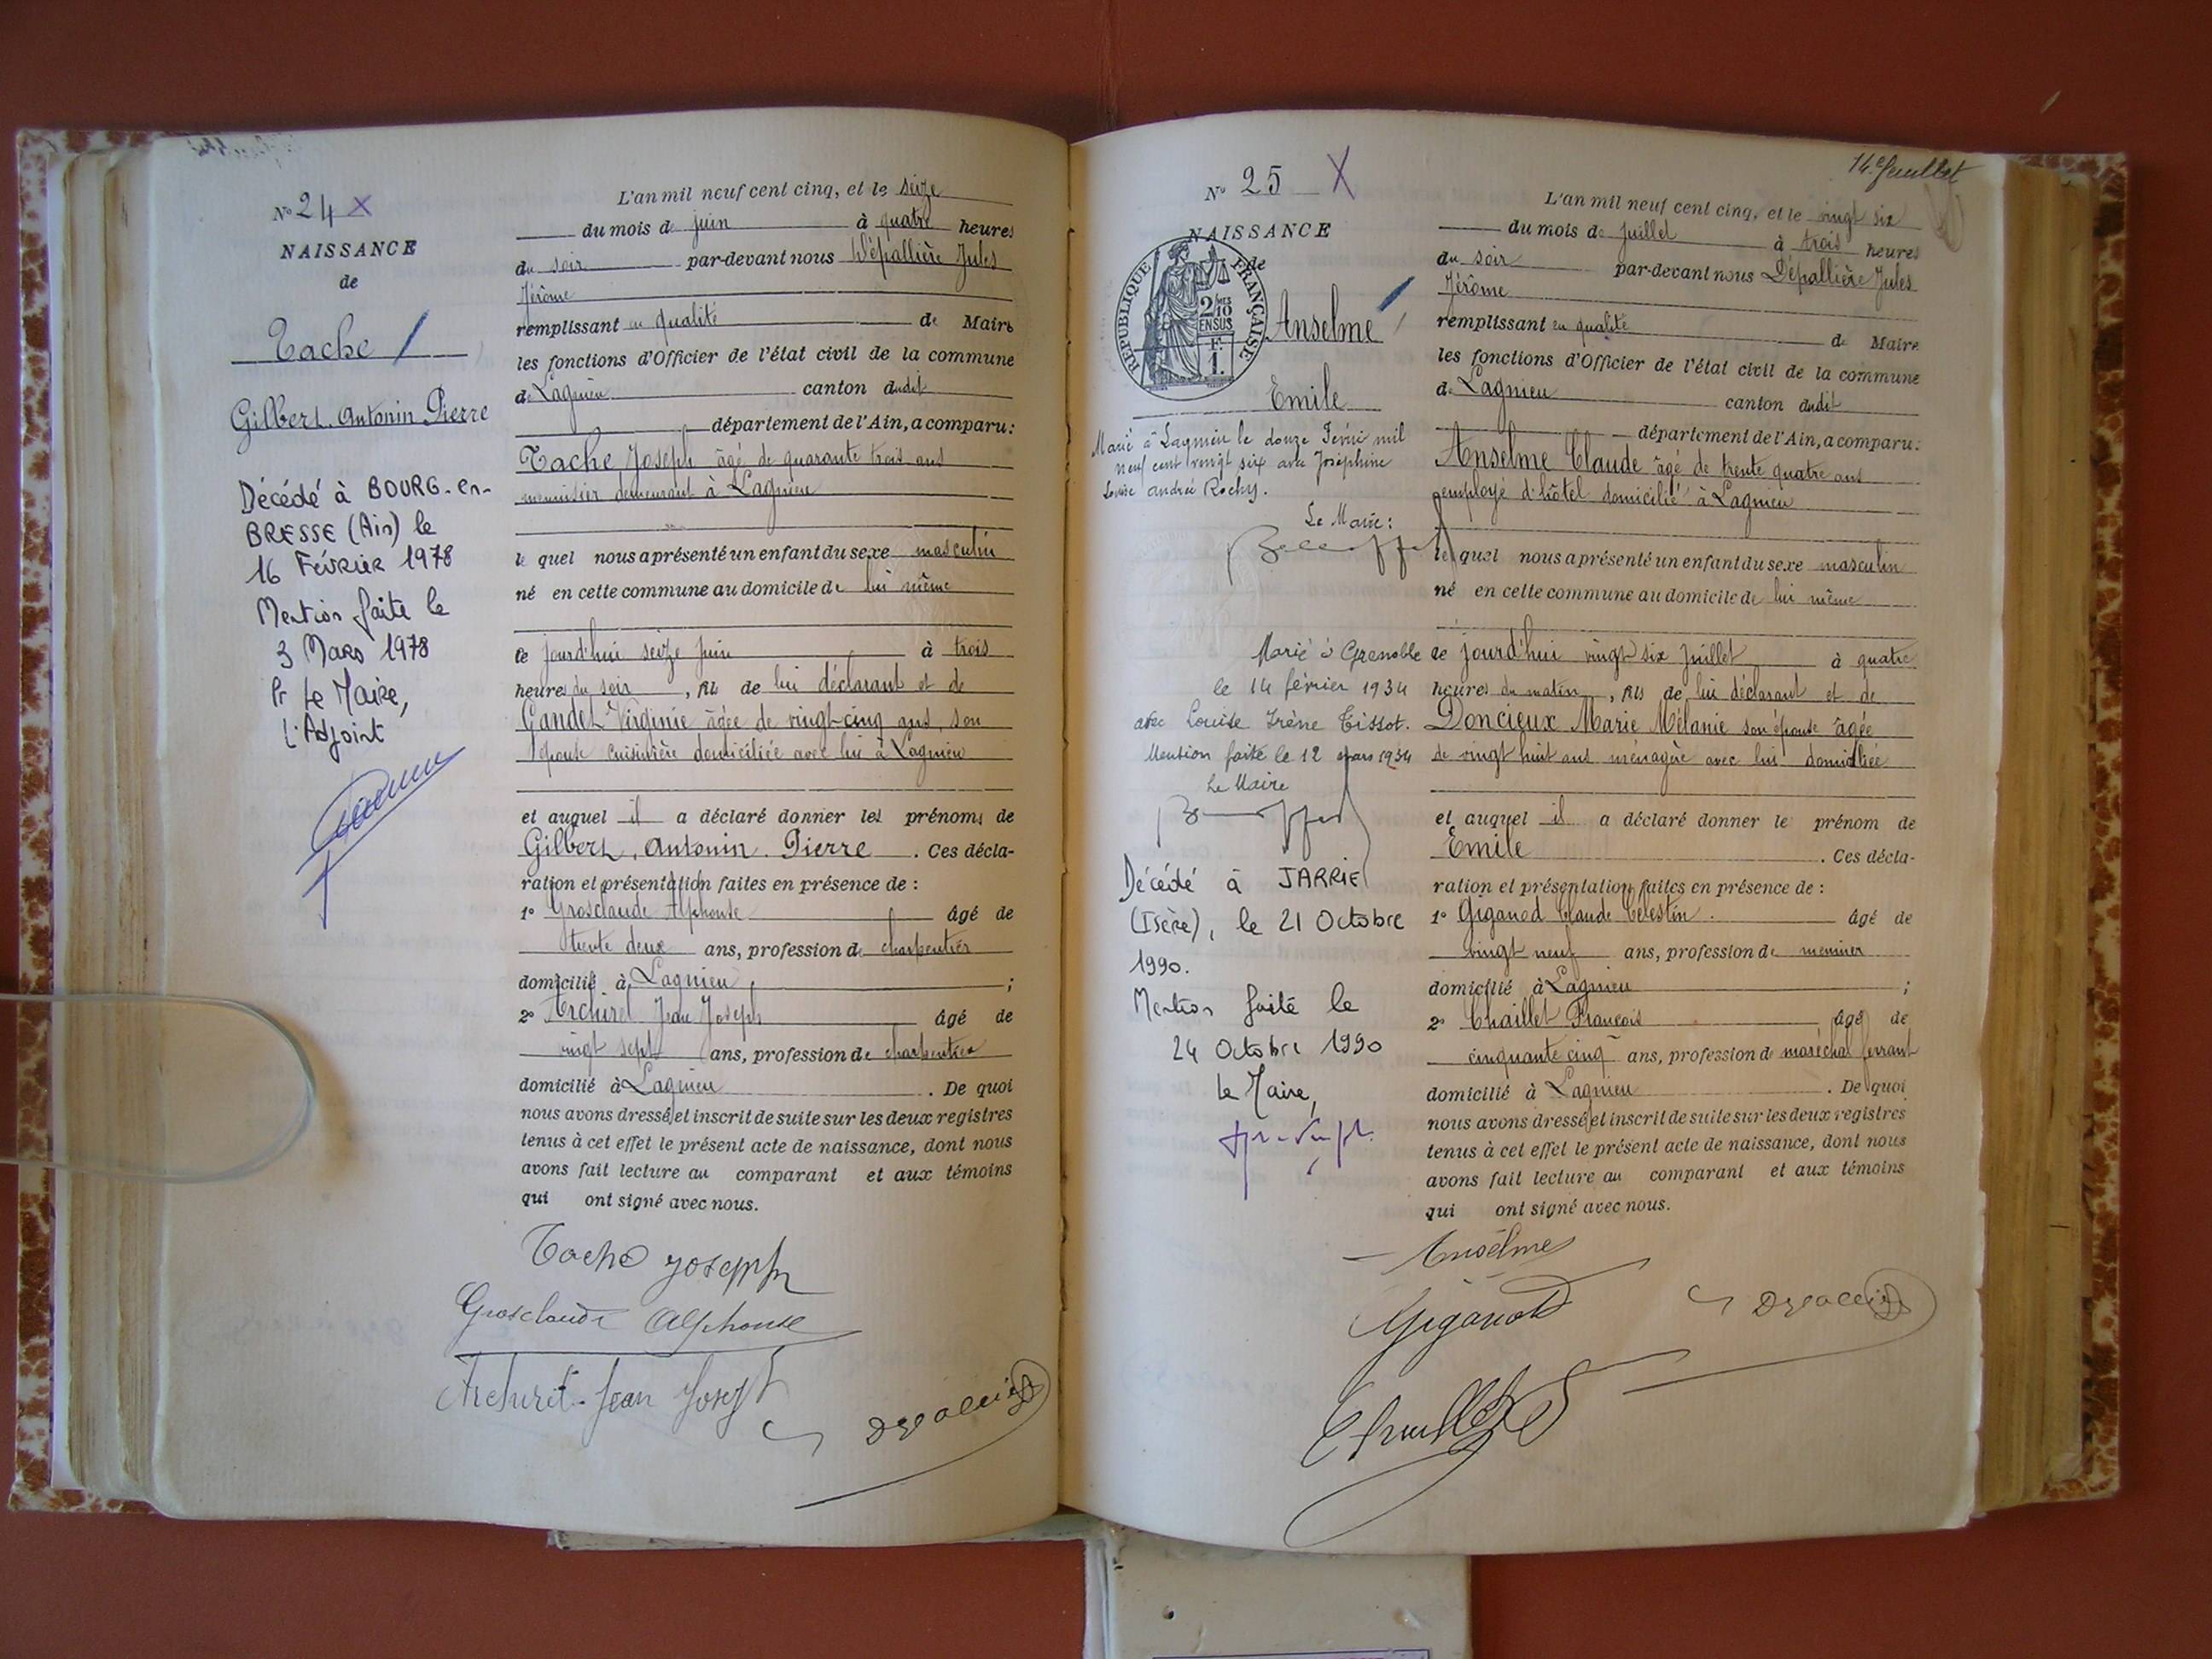 N° 24 X
NAISSANCE
de
Tache
Gilbert. Antonin Pierre
Décédé à BOURG-en-
BRESSE (Ain) le
16 Février 1978
Mention faite le
3 Mars 1978
Pr Le Maire,
L'Adjoint
L'an mil neuf cent cinq, et le seize
du mois de juin à quatre heures
du soir par-devant nous Dépallière Jules
Jérôme
remplissant en qualité de Maire
les fonctions d'Officier de l'état civil de la commune
de Lagnieu canton dudit
département de l'Ain, a comparu:
Tache Joseph âgé de quarante trois ans
menuisier demeurant à Lagnieu
le quel nous a présenté un enfant du sexe masculin
né en cette commune au domicile de lui même
ce jourd'hui seize juin à trois
heures du soir, fils de lui déclarant et de
Gandet Virginie âgée de vingt-cinq ans, son
épouse cuisinière domiciliée avec lui à Lagnieu
et auquel il a déclaré donner les prénoms de
Gilbert, Antonin. Pierre. Ces décla-
ration et présentation faites en présence de :
1° Grosclaude Alphonse âgé de
trente deux ans, profession de charpentier
domicilié à Lagnieu ;
2° Archiret Jean Joseph âgé de
vingt sept ans, profession de charpentier
domicilié à Lagnieu. De quoi
nous avons dressé et inscrit de suite sur les deux registres
tenus à cet effet le présent acte de naissance, dont nous
avons fait lecture au comparant et aux témoins
qui ont signé avec nous.
Tache Joseph
Grosclaude Alphonse
Archiret Jean Joseph
14e feuillet
N° 25 X
NAISSANCE
de
RÉPUBLIQUE FRANÇAISE
2/10 MES
EN SUS
F.
1.
Anselme
Emile
Marié à Lagnieu le douze Février mil
neuf cent vingt six avec Joséphine
Louise Andrée Rochy.
Le Maire:
Marié à Grenoble
le 14 février 1934
avec Louise Irène Tissot.
Mention faite le 12 mars 1934
Le Maire
Décédé à JARRIE
(Isère), le 21 Octobre
1990.
Mention faite le
24 Octobre 1990
Le Maire,
L'an mil neuf cent cinq, et le vingt six
du mois de juillet à trois heures
du soir par-devant nous Dépallière Jules
Jérôme
remplissant en qualité de Maire
les fonctions d'Officier de l'état civil de la commune
de Lagnieu canton dudit
département de l'Ain, a comparu:
Anselme Claude âgé de trente quatre ans
employé d'hôtel domicilié à Lagnieu
le quel nous a présenté un enfant du sexe masculin
né en cette commune au domicile de lui même
ce jourd'hui vingt six juillet à quatre
heures du matin, fils de lui déclarant et de
Doncieux Marie Mélanie son épouse âgée
de vingt huit ans ménagère avec lui domiciliée
et auquel il a déclaré donner le prénom de
Emile. Ces décla-
ration et présentation faites en présence de :
1° Giganod Claude Célestin. âgé de
vingt neuf ans, profession de
domicilié à Lagnieu ;
2° Chaillet François âgé de
cinquante cinq ans, profession de maréchal ferrant
domicilié à Lagnieu. De quoi
nous avons dressé et inscrit de suite sur les deux registres
tenus à cet effet le présent acte de naissance, dont nous
avons fait lecture au comparant et aux témoins
qui ont signé avec nous.
Anselme
Giganod